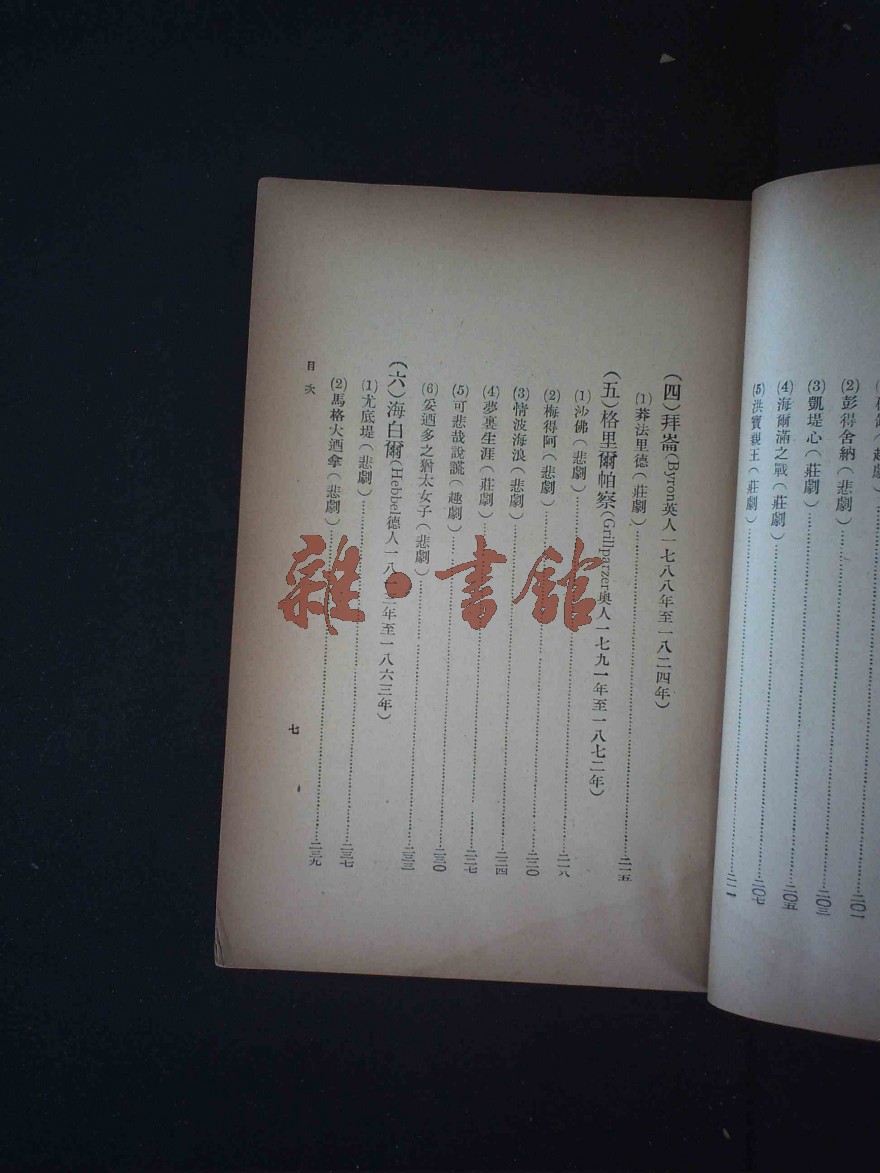 (2)彭得舍納(悲劇)……二〇一
(3)凱堤心(莊劇)……二〇三
(4)海爾滿之戰(莊劇)……二〇五
(5)洪寶親王(莊劇)……二〇七
二一一
(四)拜崙(Byron英人一七八八年至一八二四年)
(1)莽法里德(莊劇)……二一五
(五)格里爾帕察(Grillparzer奧人一七九一年至一八七二年)
(1)沙佛(悲劇)……二一八
(2)梅得阿(悲劇)……二二〇
(3)情波海浪(悲劇)……二二四
(4)夢裏生涯(莊劇)……二二七
(5)可悲哉說謊(趣劇)……二三〇
(6)妥迺多之猶太女子(悲劇)……二三三
(六)海白爾(Hebbel德人一八一三年至一八六三年)
(1)尤底堤(悲劇)……二三七
(2)馬格大迺拿(悲劇)……二三九
目次
七
雜·書館